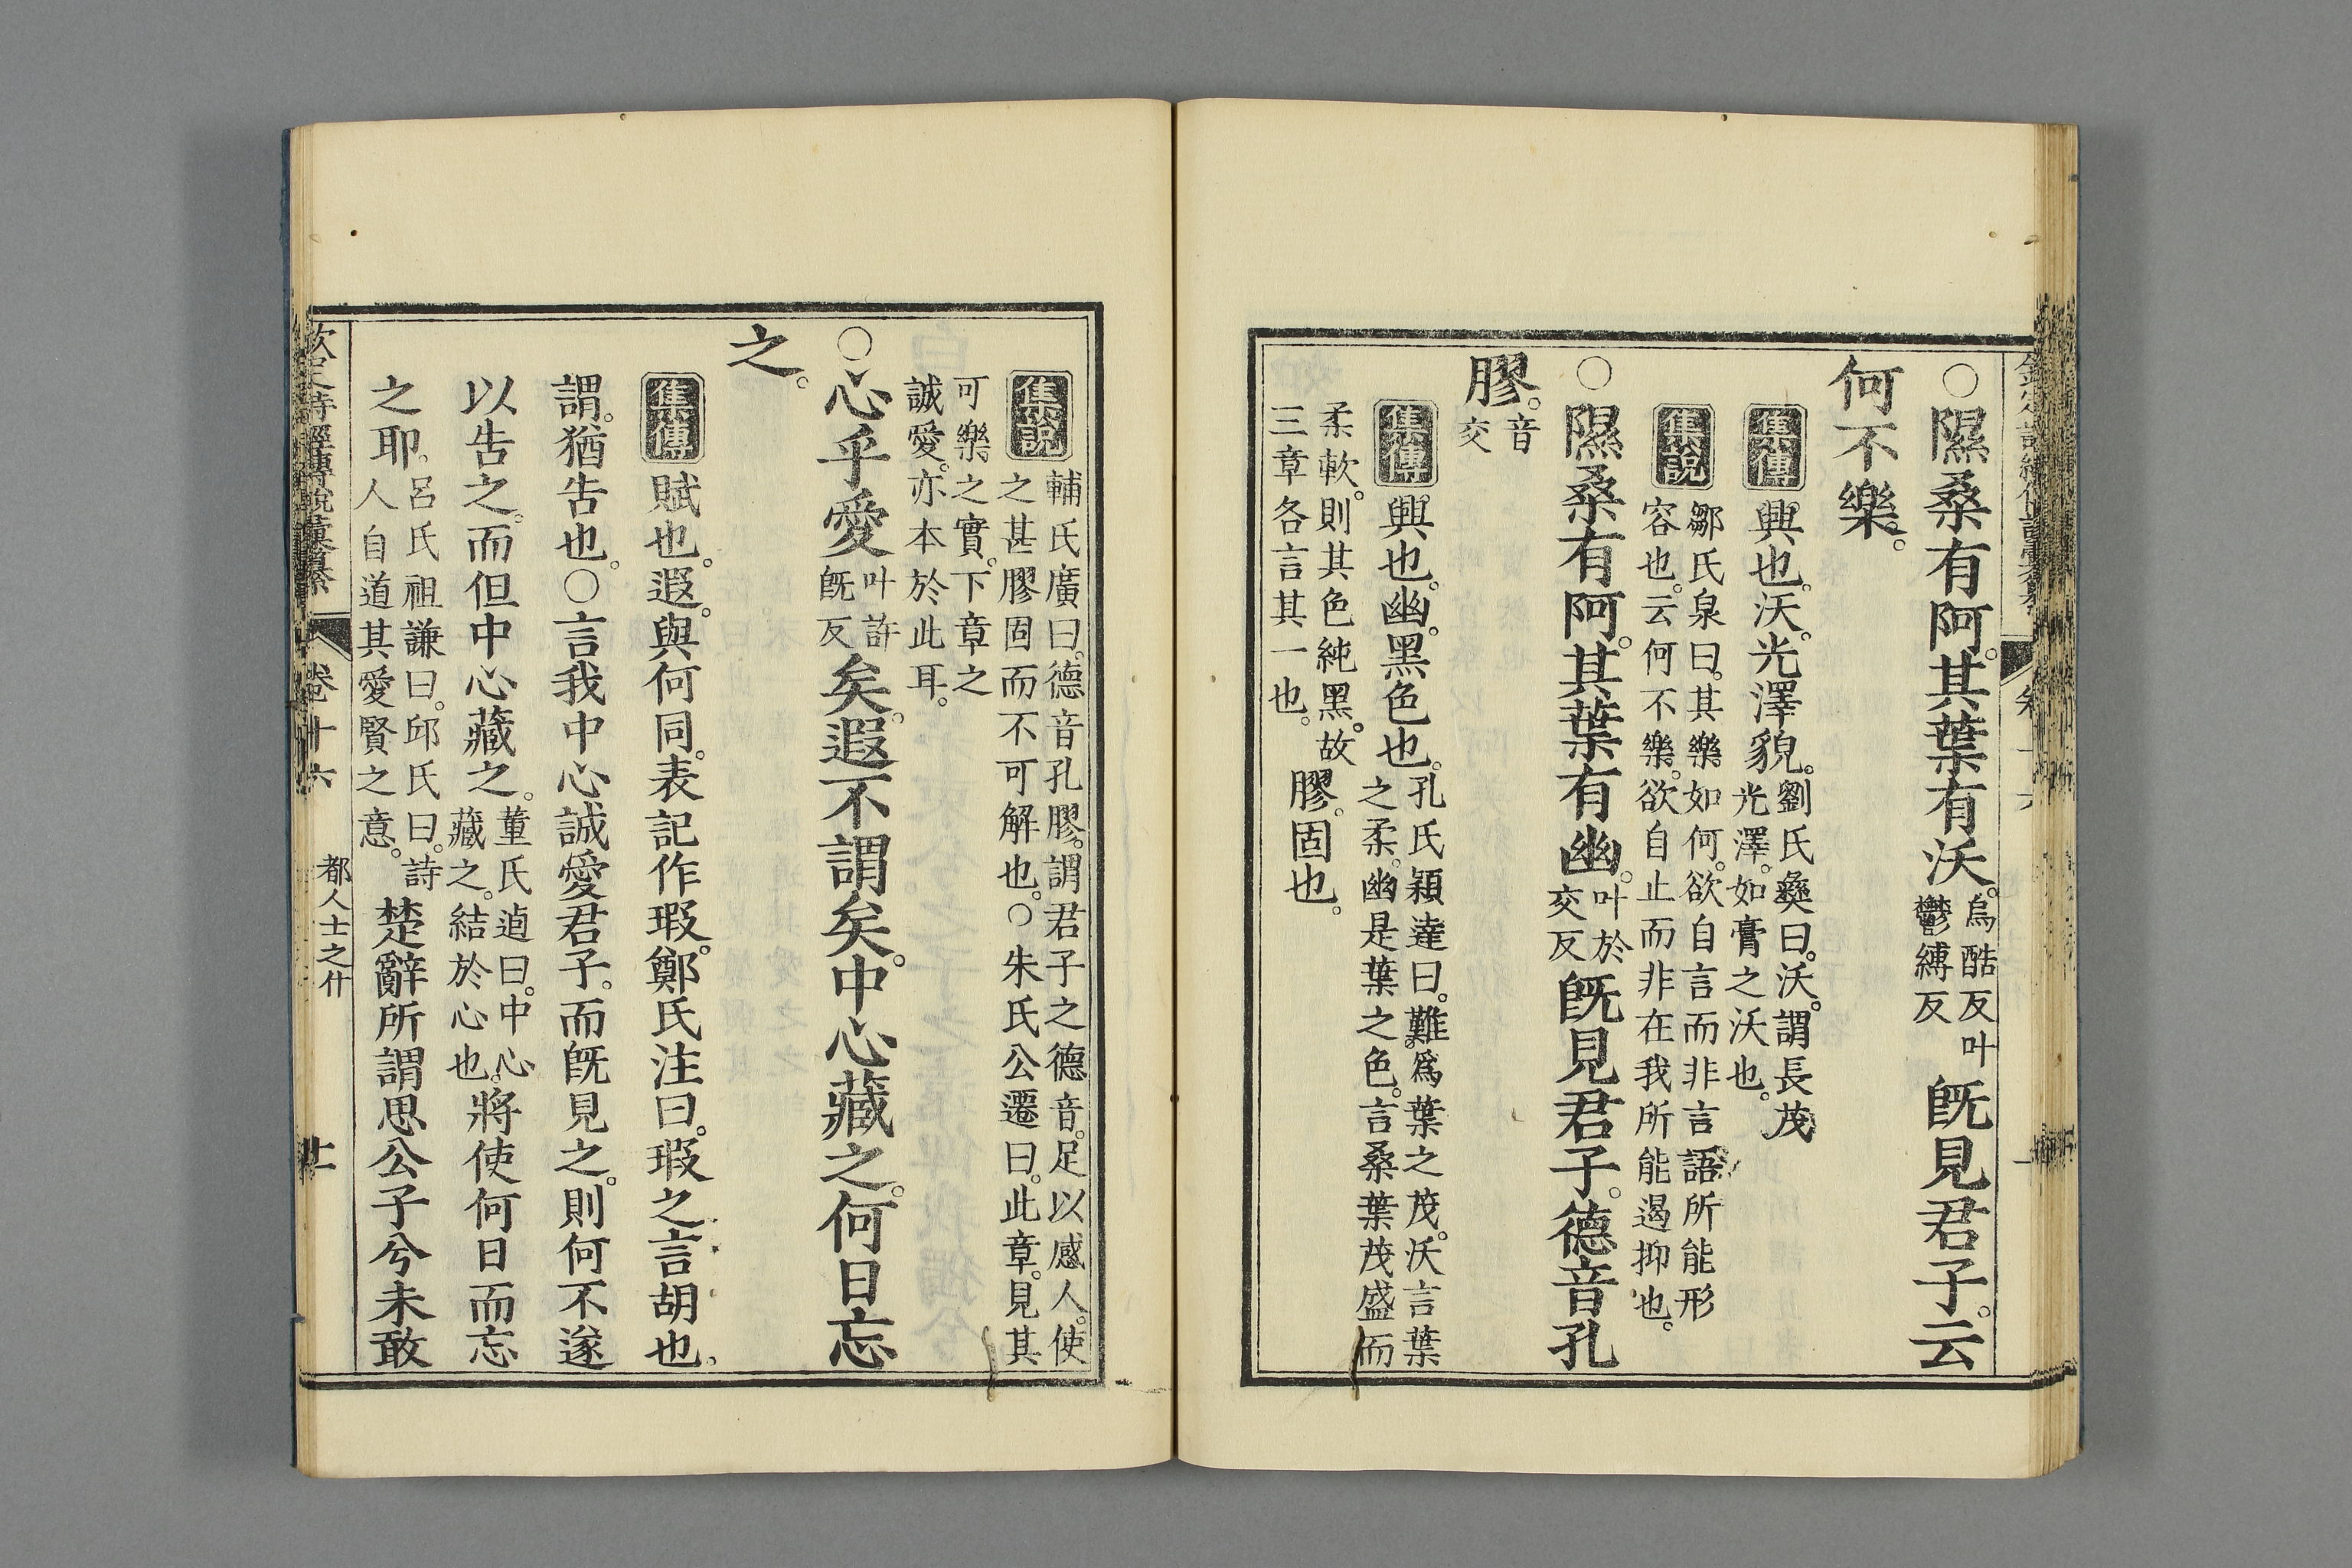 ○隰桑有阿。其葉有沃。烏酷反叶鬱縛反既見君子。云
何不樂。
集傳興也。沃。光澤貌。劉氏彝曰。沃。謂長茂光澤。如膏之沃也。
集說鄒氏泉曰。其樂如何。欲自言而非言語所能形
容也。云何不樂。欲自止而非在我所能遏抑也。
○隰桑有阿。其葉有幽。叶於交反既見君子。德音孔
膠。音交
集傳興也。幽。黑色也。孔氏穎達曰。難爲葉之茂。沃言葉之柔。幽是葉之色。言桑葉茂盛而
柔軟。則其色純黑。故三章各言其一也。膠。固也。
集說輔氏廣曰。德音孔膠。謂君子之德音。足以感人。使
之甚膠固而不可解也。○朱氏公遷曰。此章。見其
可樂之實。下章之
誠愛。亦本於此耳。
○心乎愛叶許既反矣。遐不謂矣。中心藏之。何日忘
之。
集傳賦也。遐。與何同。表記作瑕。鄭氏注曰。瑕之言胡也。
謂。猶告也。○言我中心誠愛君子。而既見之。則何不遂
以告之。而但中心藏之。董氏逌曰。中心藏之。結於心也。將使何日而忘
之耶。呂氏祖謙曰。邱氏曰。詩人自道其愛賢之意。楚辭所謂思公子兮未敢
欽定詩經傳說彙纂 卷十六 都人士之什